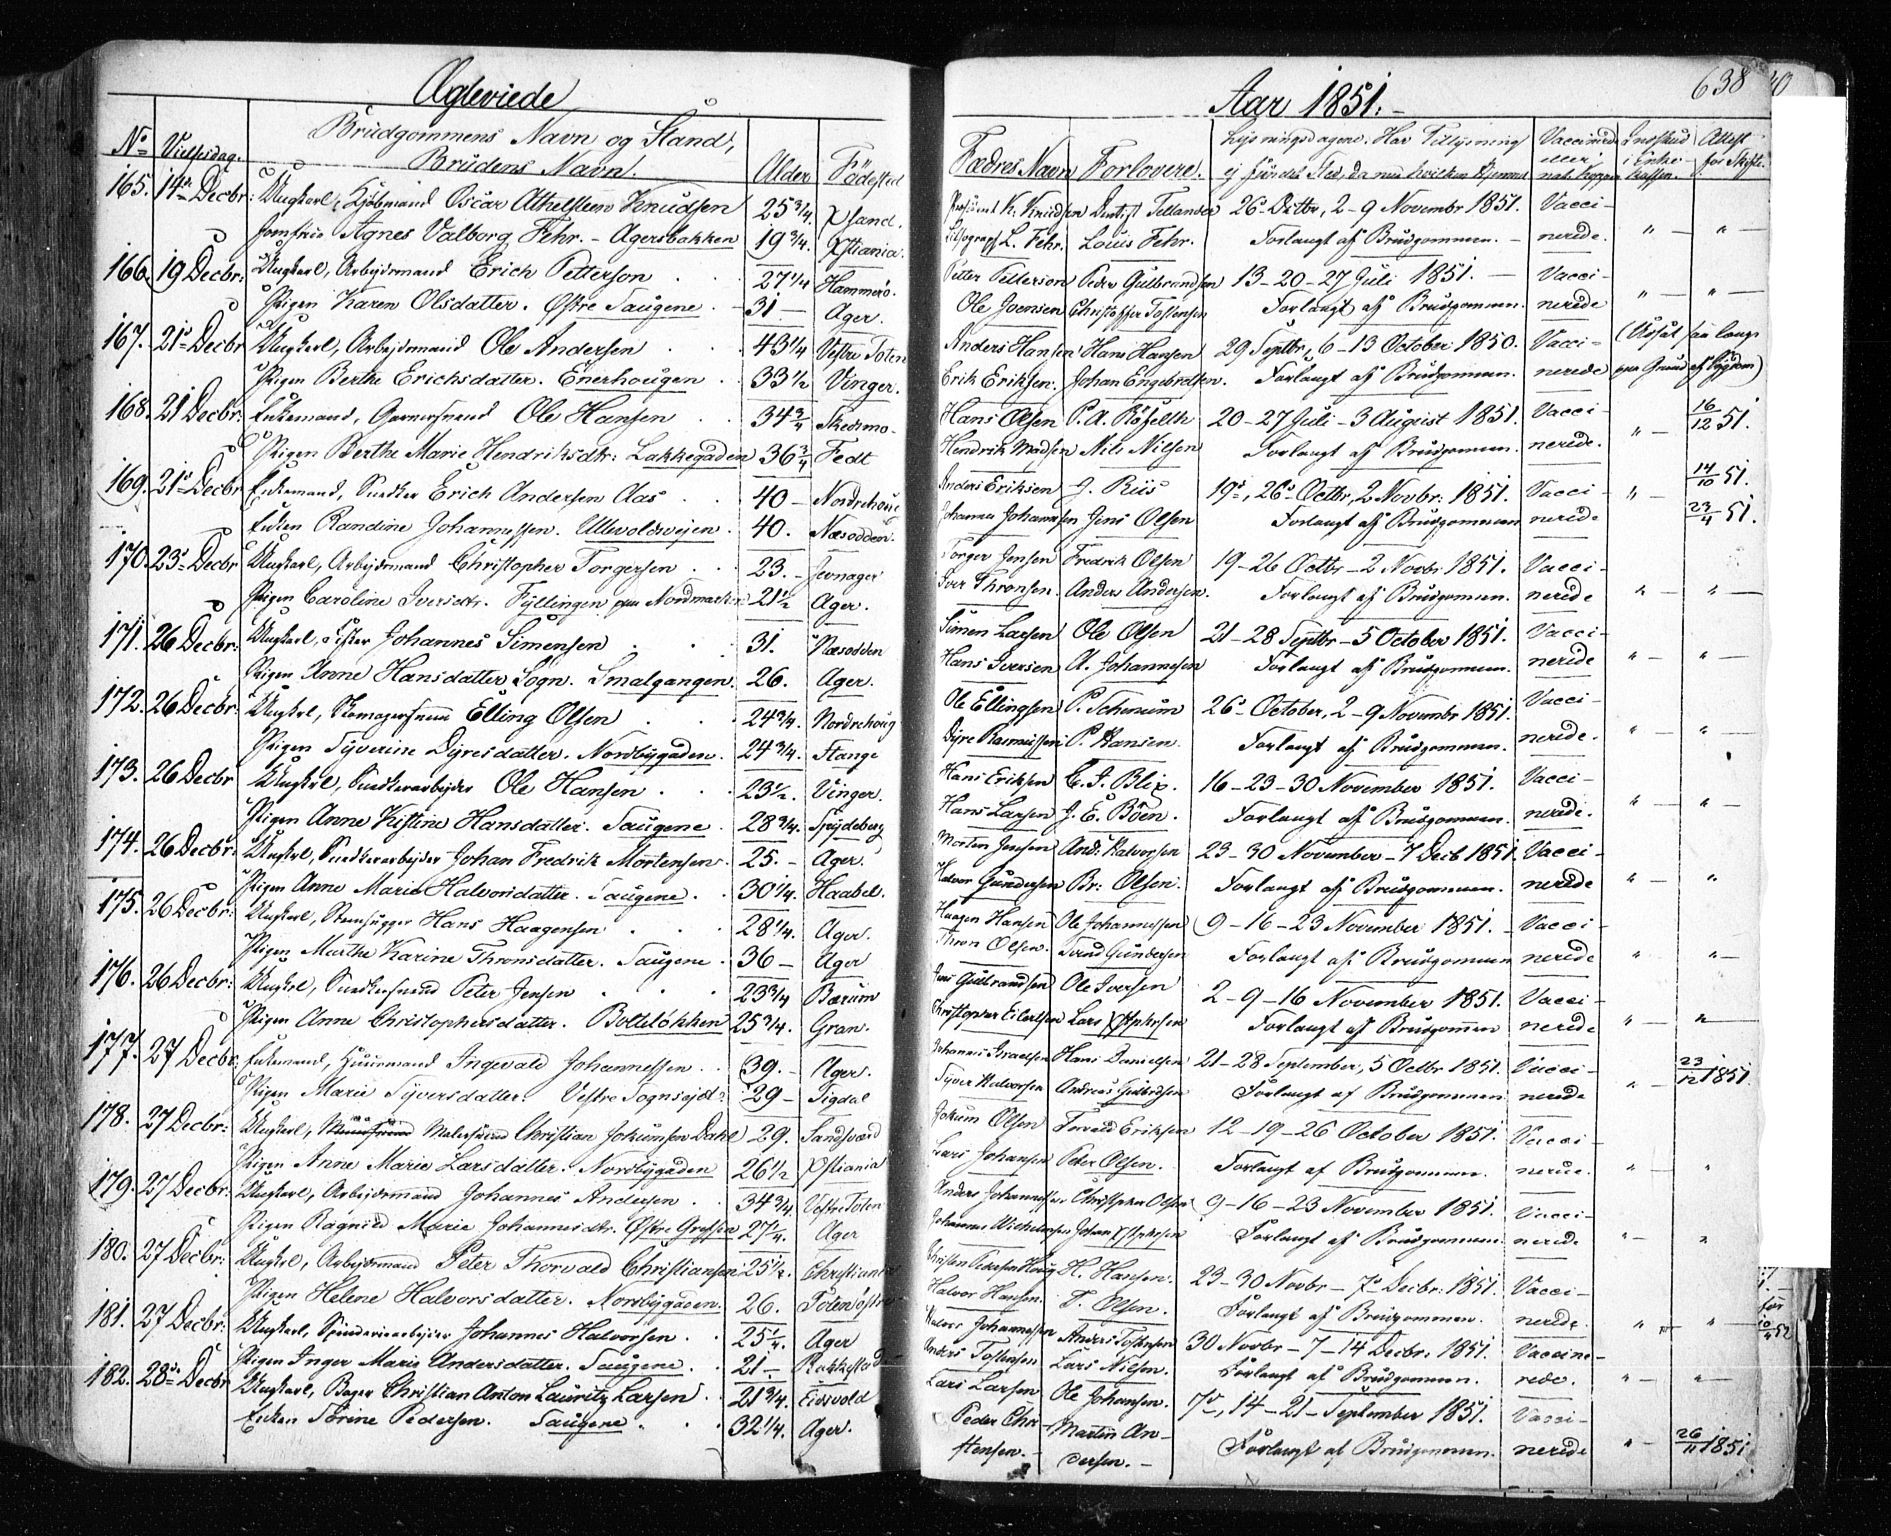 Ægteviede
Aar 1851.-
638
No Vielsesdag. Brudgommens Navn og Stand, Brudens Navn. Alder Fødested Fædres Navn Forlovere.
165. 14de Decbr: Ungkarl, Kjøbmand Oscar Athelsteen Knudsen 25 3/4. Xsand. K. Knudsen Dentist Tellander 26 Octbr, 2-9 Novembr 1851. Vacci-
Jomfrue Agnes Valborg Fehr. - Agersbakken 19 3/4. Xstiania. Lithograph L. Fehr. Louis Fehr. Forlangt af Brudgommen. - nerede. " - " -
166. 19 Decbr: Ungkarl, Arbejdsmand Erich Petterson 27 1/4 Hammerö. Petter Petterson Peder Gulbrandsen 13-20-27 Juli 1851. - Vacci-
Pigen Karen Olsdatter. Østre Saugene. - 31 - Ager. Ole Joensen Christoffer Tostensen Forlangt af Brudgommen. nerede " - " -
167. 21de Decbr Ungkarl, Arbejdsmand Ole Andersen 43 1/4 Vestre Toten Anders Hansen Hans Hansen 29 Septbr, 6-13 October 1850. Vacci- (Udsat saa længe
Pigen Berthe Erichsdatter. Enerhougen 33 1/2 Vinger. Erik Eriksen. Johan Engebretsen. Forlangt af Brudgommen. nerede paa Grund af Sygdom)
168. 21 Decbr: Enkemand, Garversvend Ole Hansen 34 3/4 Skedsmo. Hans Olsen P. A. 20-27 Juli-3 August 1851. Vacci- 16/12 51.
Pigen Berthe Marie Hendriksdtr: Lakkegaden 36 3/4 Fedt Hendrik Madsen Nils Nilsen Forlangt af Brudgommen. nerede. " -
169. 21de Decbr Enkemand, Snedker Erich Andersen Aas 40 - Nordrehoug Anders Eriksen J. Riis 19de, 26de Octbr, 2 Novbr: 1851. Vacci- " - 14/10 51.
Enken Randine Johannessen. Ullevoldsvejen. 40. Næsodden. Johannes Johannesen Jens Olsen Forlangt af Brudgommen nerede 23/4 51.
170. 23de Decbr Ungkarl, Arbejdsmand Christopher Torgersen 23. - Jevnager Torger Jensen Fredrik Olsen 19-26 Octbr-2 Novbr 1851. Vacci-
Pigen Caroline Iversdtr. Fyllingen paa Nordmarken 21 1/2 Ager. Iver Thronsen. Anders Andersen. Forlangt af Brudgommen. nerede " - " -
171. 26 Decbr: Ungkarl, Johannes Simensen 31. Næsodden Simen Larsen Ole Olsen 21-28 Septbr-5 October 1851. Vacci-
Pigen Anne Hansdatter Sogn. Smalgangen. 26. Ager. Hans Iversen A. Johannesen Forlangt af Brudgommen. nerede " - " -
172. 26 Decbr: Ungkarl, Skomagersvend Elling Olsen 24 3/4. Nordrehoug Ole Ellingsen P. Schenum 26de October, 2-9 Novembr 1851. Vacci-
Pigen Syverine Dyresdatter. Nordbygaden. 24 3/4. Stange Dyre Rasmussen P. Hansen. Forlangt af Brudgommen. nerede. " - " -
173. 26 Decbr Ungkarl, Snedkerarbejder Ole Hansen 23 1/2. Vinger. Hans Eriksen C. J. Blix. 16-23-30 November 1851. Vacci-
Pigen Anne Kistine Hansdatter. Saugene. 28 3/4. Spydeberg Hans Larsen J. E. Böen. Forlangt af Brudgommen. nerede. " - " -
174. 26 Decbr: Ungkarl, Snedkerarbejder Johan Fredrik Mortensen 25. - Ager. Morten Jensen And: Halvorsen 23-30 November-7 Decb 1851. Vacci-
Pigen Anne Marie Halvorsdatter. Saugene. 30 1/4. Haabøl. Halvor Gundersen Br: Olsen. Forlangt af Brudgommen. nerede " - "
175. 26 Decbr: Ungkarl, Steenhugger Hans Haagensen 28 1/4. Ager. Haagen Hansen Ole Johannessen 9-16-23 November 1851. Vacci-
Pigen Marthe Karine Thronsdatter. Saugene. 36 - Ager Thron Olsen. Svend Gundersen Forlangt af Brudgommen nerede " " -
176. 26 Decbr: Ungkarl, Snedkersvend Peter Jensen 23 3/4 Bærum Jens Gulbrandsen Ole Iversen 2-9-16 November 1851. Vacci-
Pigen Anne Christophersdatter. Bolteløkken 25 3/4. Gran. Christopher Eilertsen Lars Xstphersen Forlangt af Brudgommen nerede " - " -
177. 27 Decbr: Enkemand, Huusmand Ingevald Johannessen 39. - Ager. Johannes Israelsen Hans Danielsen 21-28 September, 5 Octbr 1851. Vacci- 23/12 1851.
Pigen Marie Syversdatter. Vestre Sognsejet. 29 - Sigdal Syver Halvorsen Andreas Forlangt af Brudgommen nerede " -
178. 27 Decbr: Ungkarl, Malersvend Christian Jokumsen Dahl 29. Sandsværd Jokum Olsen Torvald Eriksen 12-19-26 October 1851. Vacci-
Pigen Anne Marie Larsdatter. Nordbygaden 26 1/2 Xstiania Lars Johansen Peter Olsen. Forlangt af Brudgommen. nerede. " - "
179. 27 Decbr: Ungkarl, Arbejdsmand Johannes Andersen 34 3/4. Vestre Toten Anders Johannessen Christopher Olsen 9-16-23 November 1851. Vacci-
Pigen Ragnild Marie Johannesdtr. Østre Grefsen 27 1/4. Ager Johannes Wilhelmsen Johan Xstphersen Forlangt af Brudgommen nerede " - "
180. 27 Decbr: Ungkarl, Arbejdsmand Peter Thorvald Christiansen 25 1/2. Christiania Christian Petersen Houg H. Hansen. 23-30 Novbr-7de Decbr: 1851. Vacci-
Pigen Helene Halvorsdatter. Nordbygaden. 26. Toten østre Halvor Hansen. T. Olsen. Forlangt af Brudgommen. nerede. " - " -
181. 27 Decbr: Ungkarl, Spinderiearbejder Johannes Halvorsen. 25 1/4. Ager Halvor Johannessen Anders Tostensen 30 Novbr-7-14 Decbr. 1851. Vaccine-
Pigen Inger Marie Andersdatter. Saugene. 21 - Rakkestad Anders Tostensen Lars Nilsen. Forlangt af Brudgommen. rede. " - " -
182. 28de Decbr Ungkarl, Bager Christian Anton Lauritz Larsen 21 3/4. Eidsvold Lars Larsen Ole Johansen. 7de, 14-21 September 1851. Vacci-
Enken Sörine Pedersen. Saugene. 32 1/4. Ager. Peder Chri-stensen. - Martin An-dersen. - Forlangt af Brudgommen. nerede " - 26/11 1851.